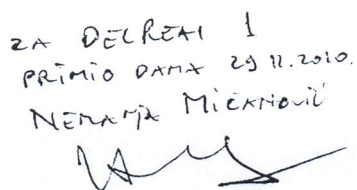 ZA DELREAI 1
PRIMIO DAMA 29 11.2010.
NEMANJA MIĆANOVIĆ